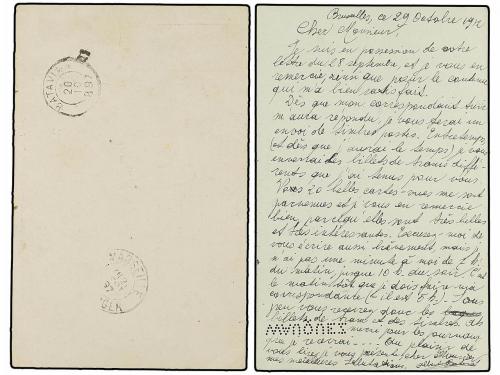 BATAVIA
20
10
897
MARSEILLE
Bruxelles, ce 29 Octobre 19
Cher Monsieur,
Je suis en possession de votre
lettre du 28 septembre et je vous en
remercie, ainsi que pour le contenu
qui m'a bien satisfait.
Dès que mon correspondant
m'aura répondu, je vous ferai un
envoi de timbres postes. Entretemps
(et dès que j'aurai le temps) je vous
enverrai des billets de trams diffé-
rents que j'ai tenus pour vous
Vos 20 belles cartes-vues me sont
parvenues et je vous en remercie
bien, parce qu'elles sont très belles
et très intéressantes. Excusez-moi de
vous écrire aussi brièvement, mais je
n'ai pas une minute à moi de 7 h.
du matin, jusque 10 h. du soir. C'est
le matin tôt que je dois faire ma
correspondance (il est 5 h). Sous
peu vous recevrez donc les
billets de tram et des timbres
merci pour les journaux
que je recevrai.... Au plaisir de
vous lire, je vous présente, cher Monsieur,
mes meilleures salutations.